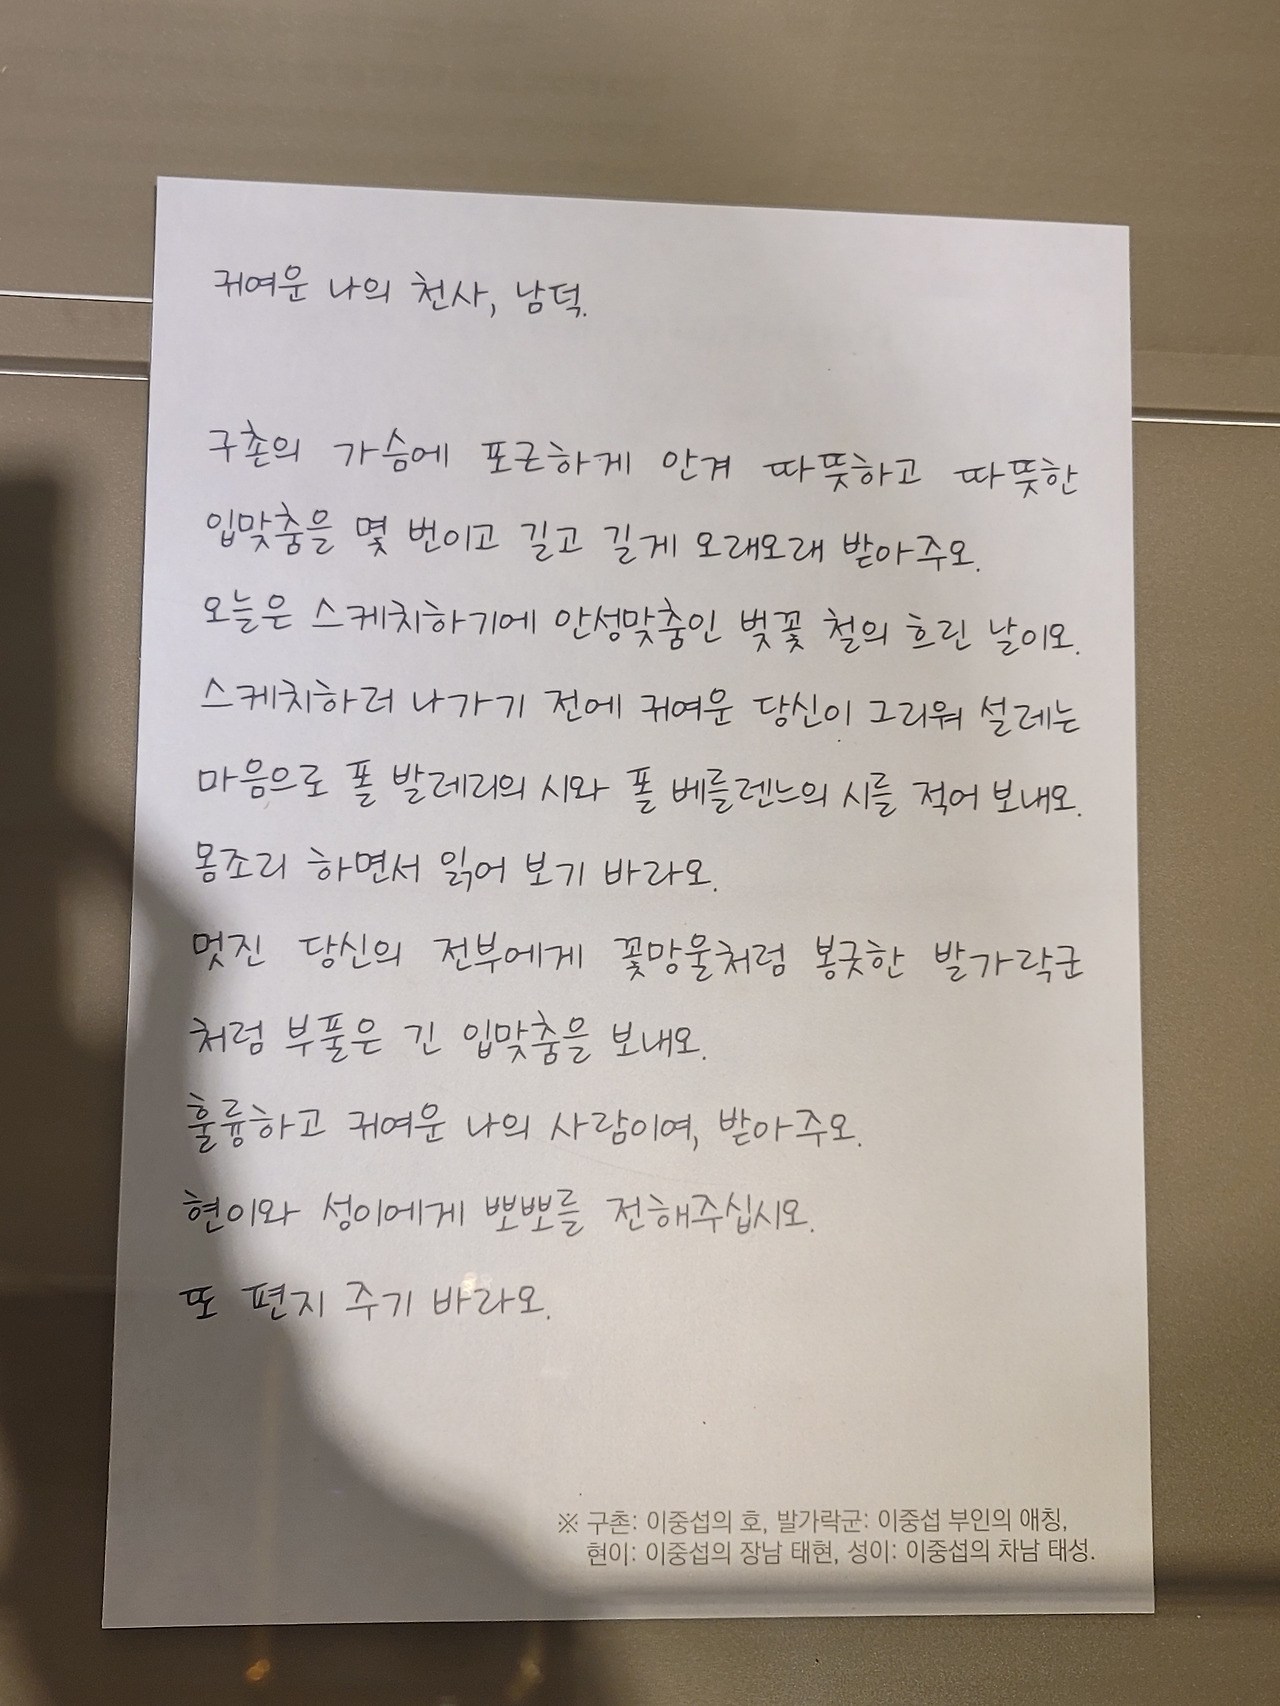 귀여운 나의 천사, 남덕.
구촌의 가슴에 포근하게 안겨 따뜻하고 따뜻한
입맞춤을 몇 번이고 길고 길게 오래오래 받아주오.
오늘은 스케치하기에 안성맞춤인 벚꽃 철의 흐린 날이오.
스케치하러 나가기 전에 귀여운 당신이 그리워 설레는
마음으로 폴 발레리의 시와 폴 베를렌느의 시를 적어 보내오.
몸조리 하면서 읽어 보기 바라오.
멋진 당신의 전부에게 꽃망울처럼 봉긋한 발가락군
처럼 부풀은 긴 입맞춤을 보내오.
훌륭하고 귀여운 나의 사람이여, 받아주오.
현이와 성이에게 뽀뽀를 전해주십시오.
또 편지 주기 바라오.
※ 구촌: 이중섭의 호, 발가락군: 이중섭 부인의 애칭,
현이: 이중섭의 장남 태현, 성이: 이중섭의 차남 태성.